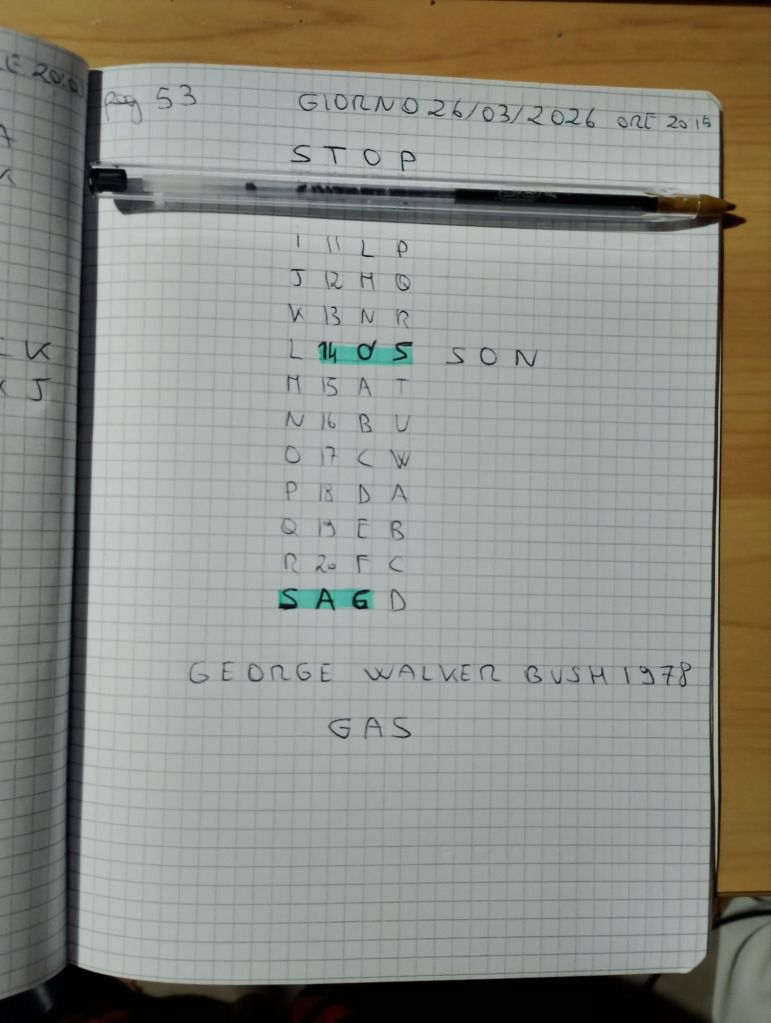 E 20:0
pag 53
GIORNO 26/03/2026 ORE 20:15
S T O P
I 11 L P
J 12 M Q
K 13 N R
L 14 O S S O N
M 15 A T
N 16 B U
O 17 C W
P 18 D A
Q 19 E B
R 20 F C
S A G D
GEORGE WALKER BUSH 1978
G A S
K
J